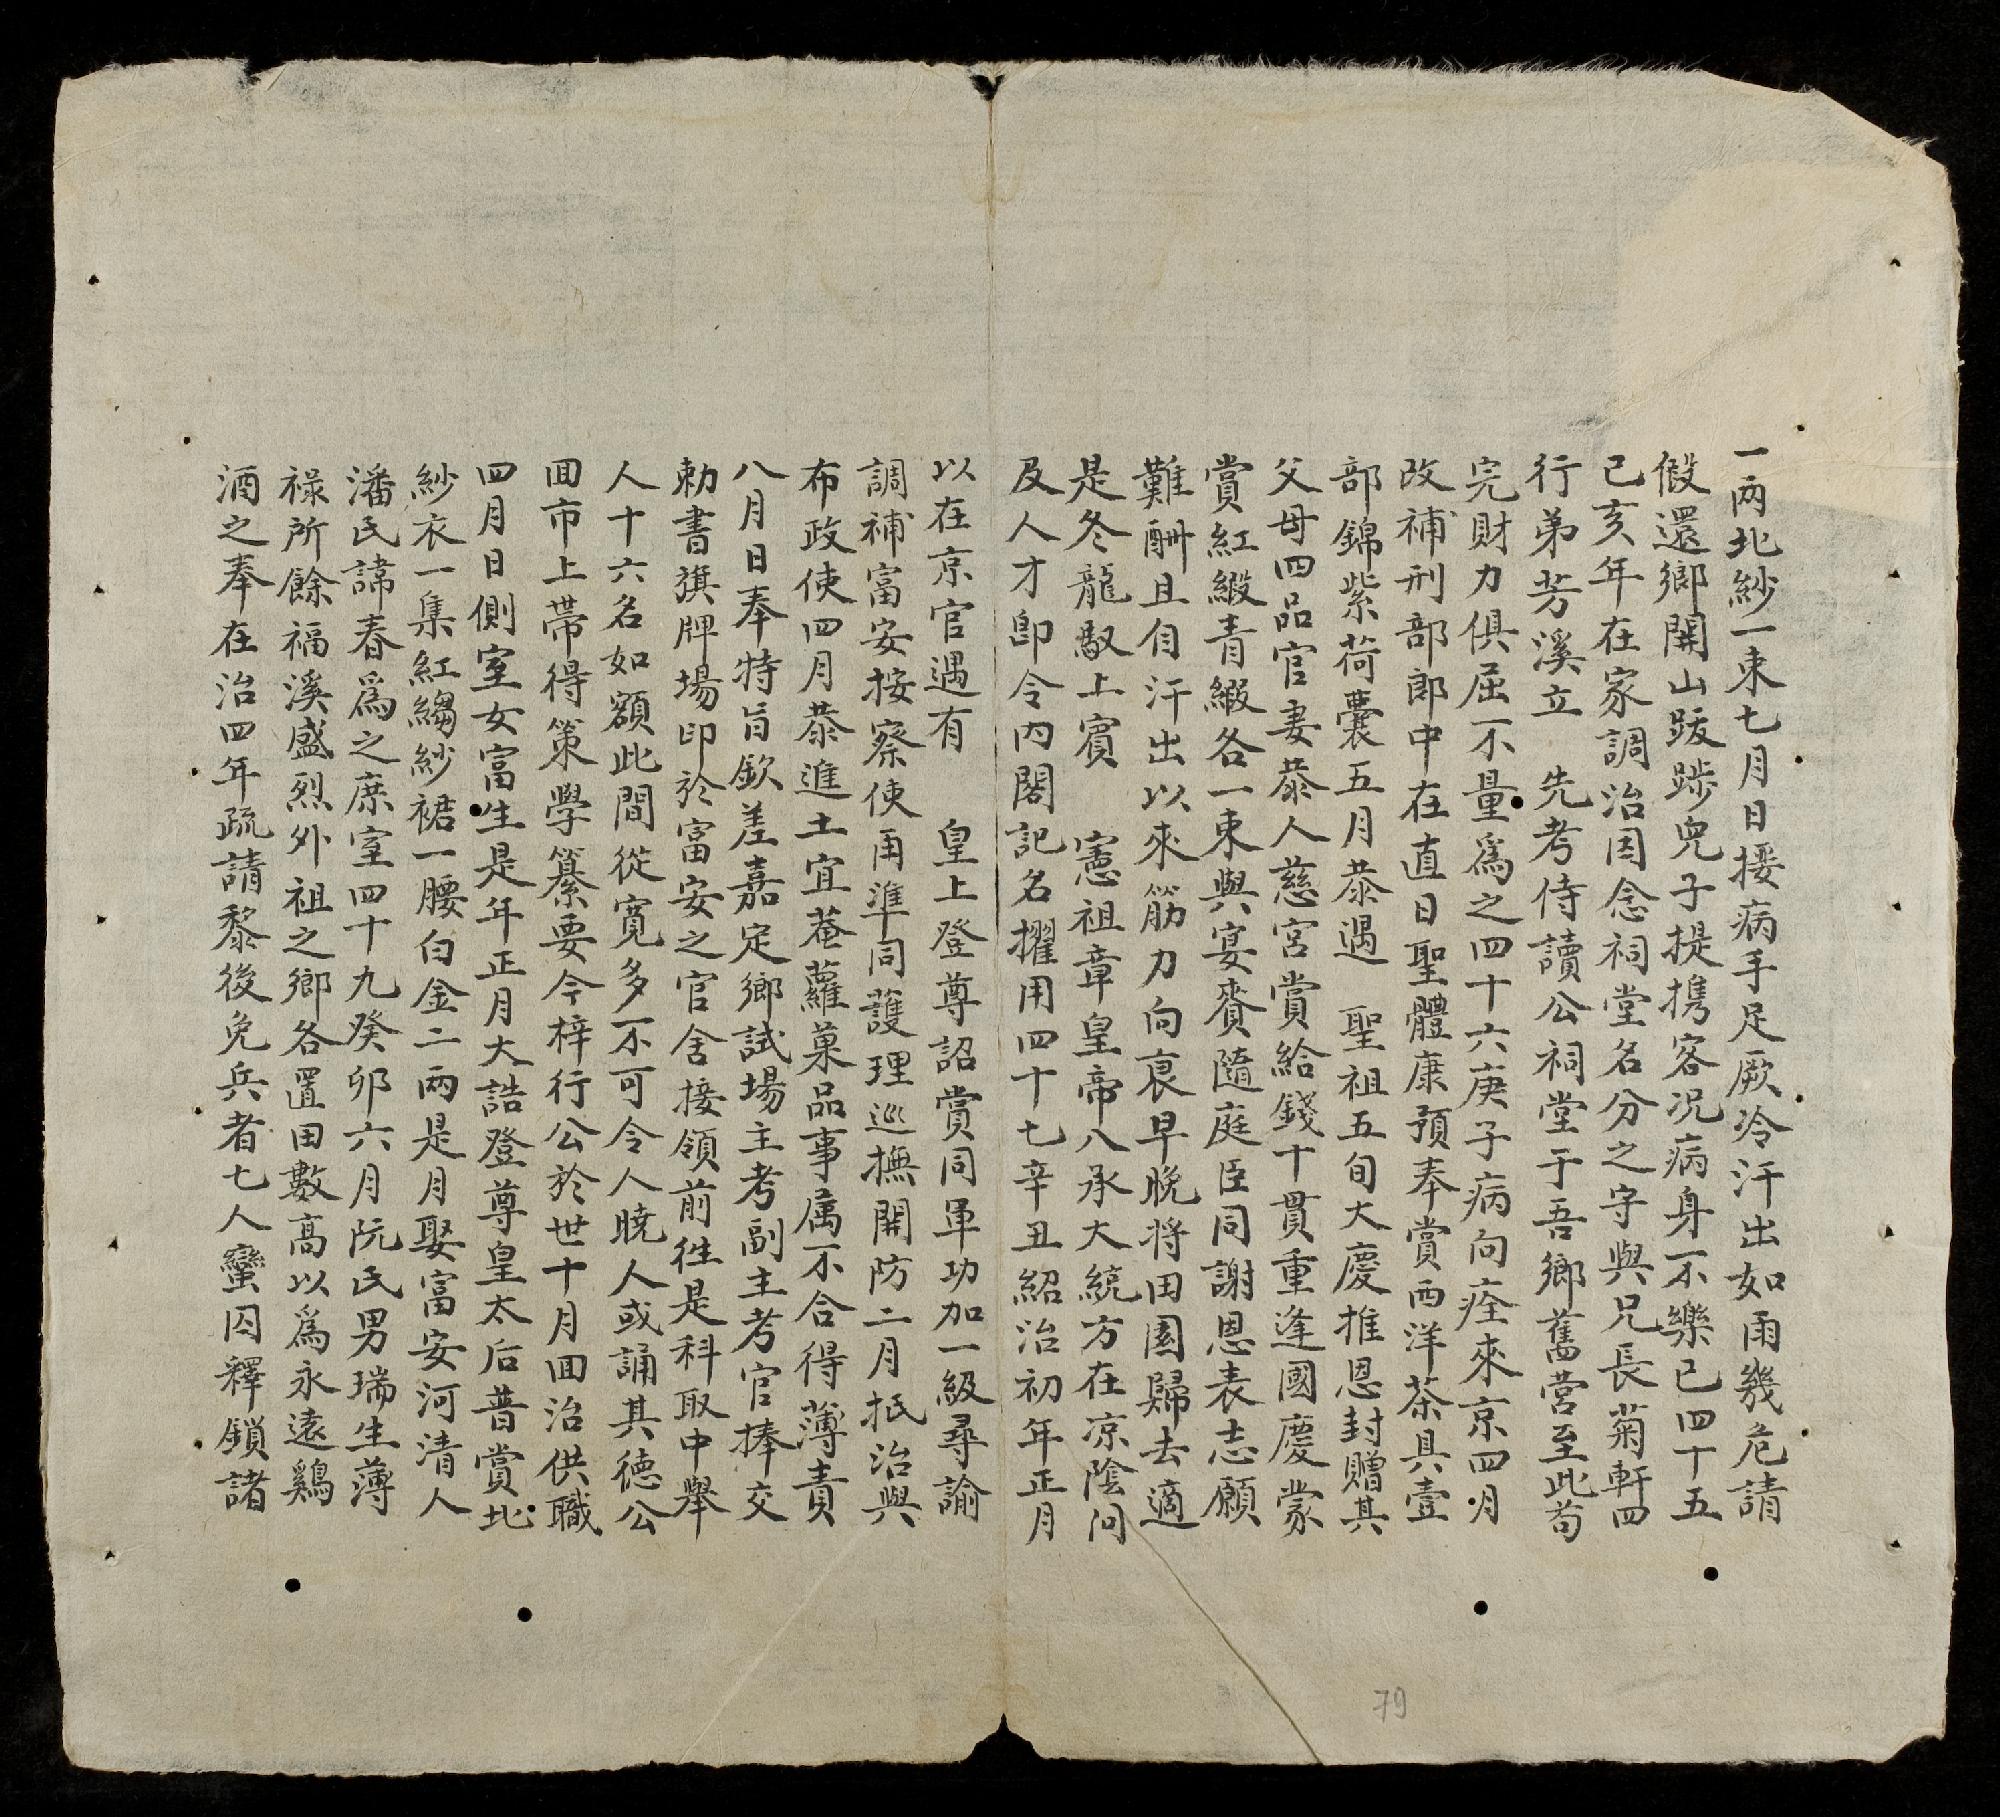 一兩北紗一束七月日接病手足厥冷汗出如雨幾危請
假還鄉開山跋踄兒子提携客况病身不樂已四十五
己亥年在家調治因念祠堂名分之守與兄長菊軒四
行弟芳溪立　先考侍讀公祠堂于吾鄉舊营至此苟
完財力俱屈不量為之四十六庚子病向痊來京四月
改補刑部郎中在直日聖體康預奉賞西洋茶具壹
部錦紫荷囊五月恭遇　聖祖五旬大慶推恩封贈其
父母四品官妻恭人慈宮賞給錢十貫重逢國慶蒙
賞紅緞青緞各一束與宴賚隨庭臣同謝恩表志願
難酬且自汗出以來筋力向衰早晚將田園歸去適
是冬龍馭上賓　憲祖章皇帝八承大統方在凉陰问
及人才卽令內閣記名擢用四十七辛丑紹治初年正月
以在京官遇有　皇上登尊詔賞同軍功加一級尋諭
調補富安按察使再準同護理巡撫開防二月抵治與
布政使四月恭進土宜菴蘿菓品事属不合得薄責
八月日奉特旨欽差嘉定鄉試場主考副主考官捧交
勅書旗牌場印於富安之官舍接領前徃是科取中舉
人十六名如額此間從寛多不可令人曉人或誦其德公
囬市上帶得策學纂要今梓行公於世十月囬治供職
四月日側室女富生是年正月大誥登尊皇太后普賞北
紗衣一集紅縐紗裙一腰白金二兩是月娶富安河清人
潘氏諱春為之庶室四十九癸卯六月阮氏男瑞生薄
祿所餘福溪盛烈外祖之鄉各置田數高以為永遠鷄
酒之奉在治四年疏請黎後免兵者七人蠻囚釋鎖諸
79